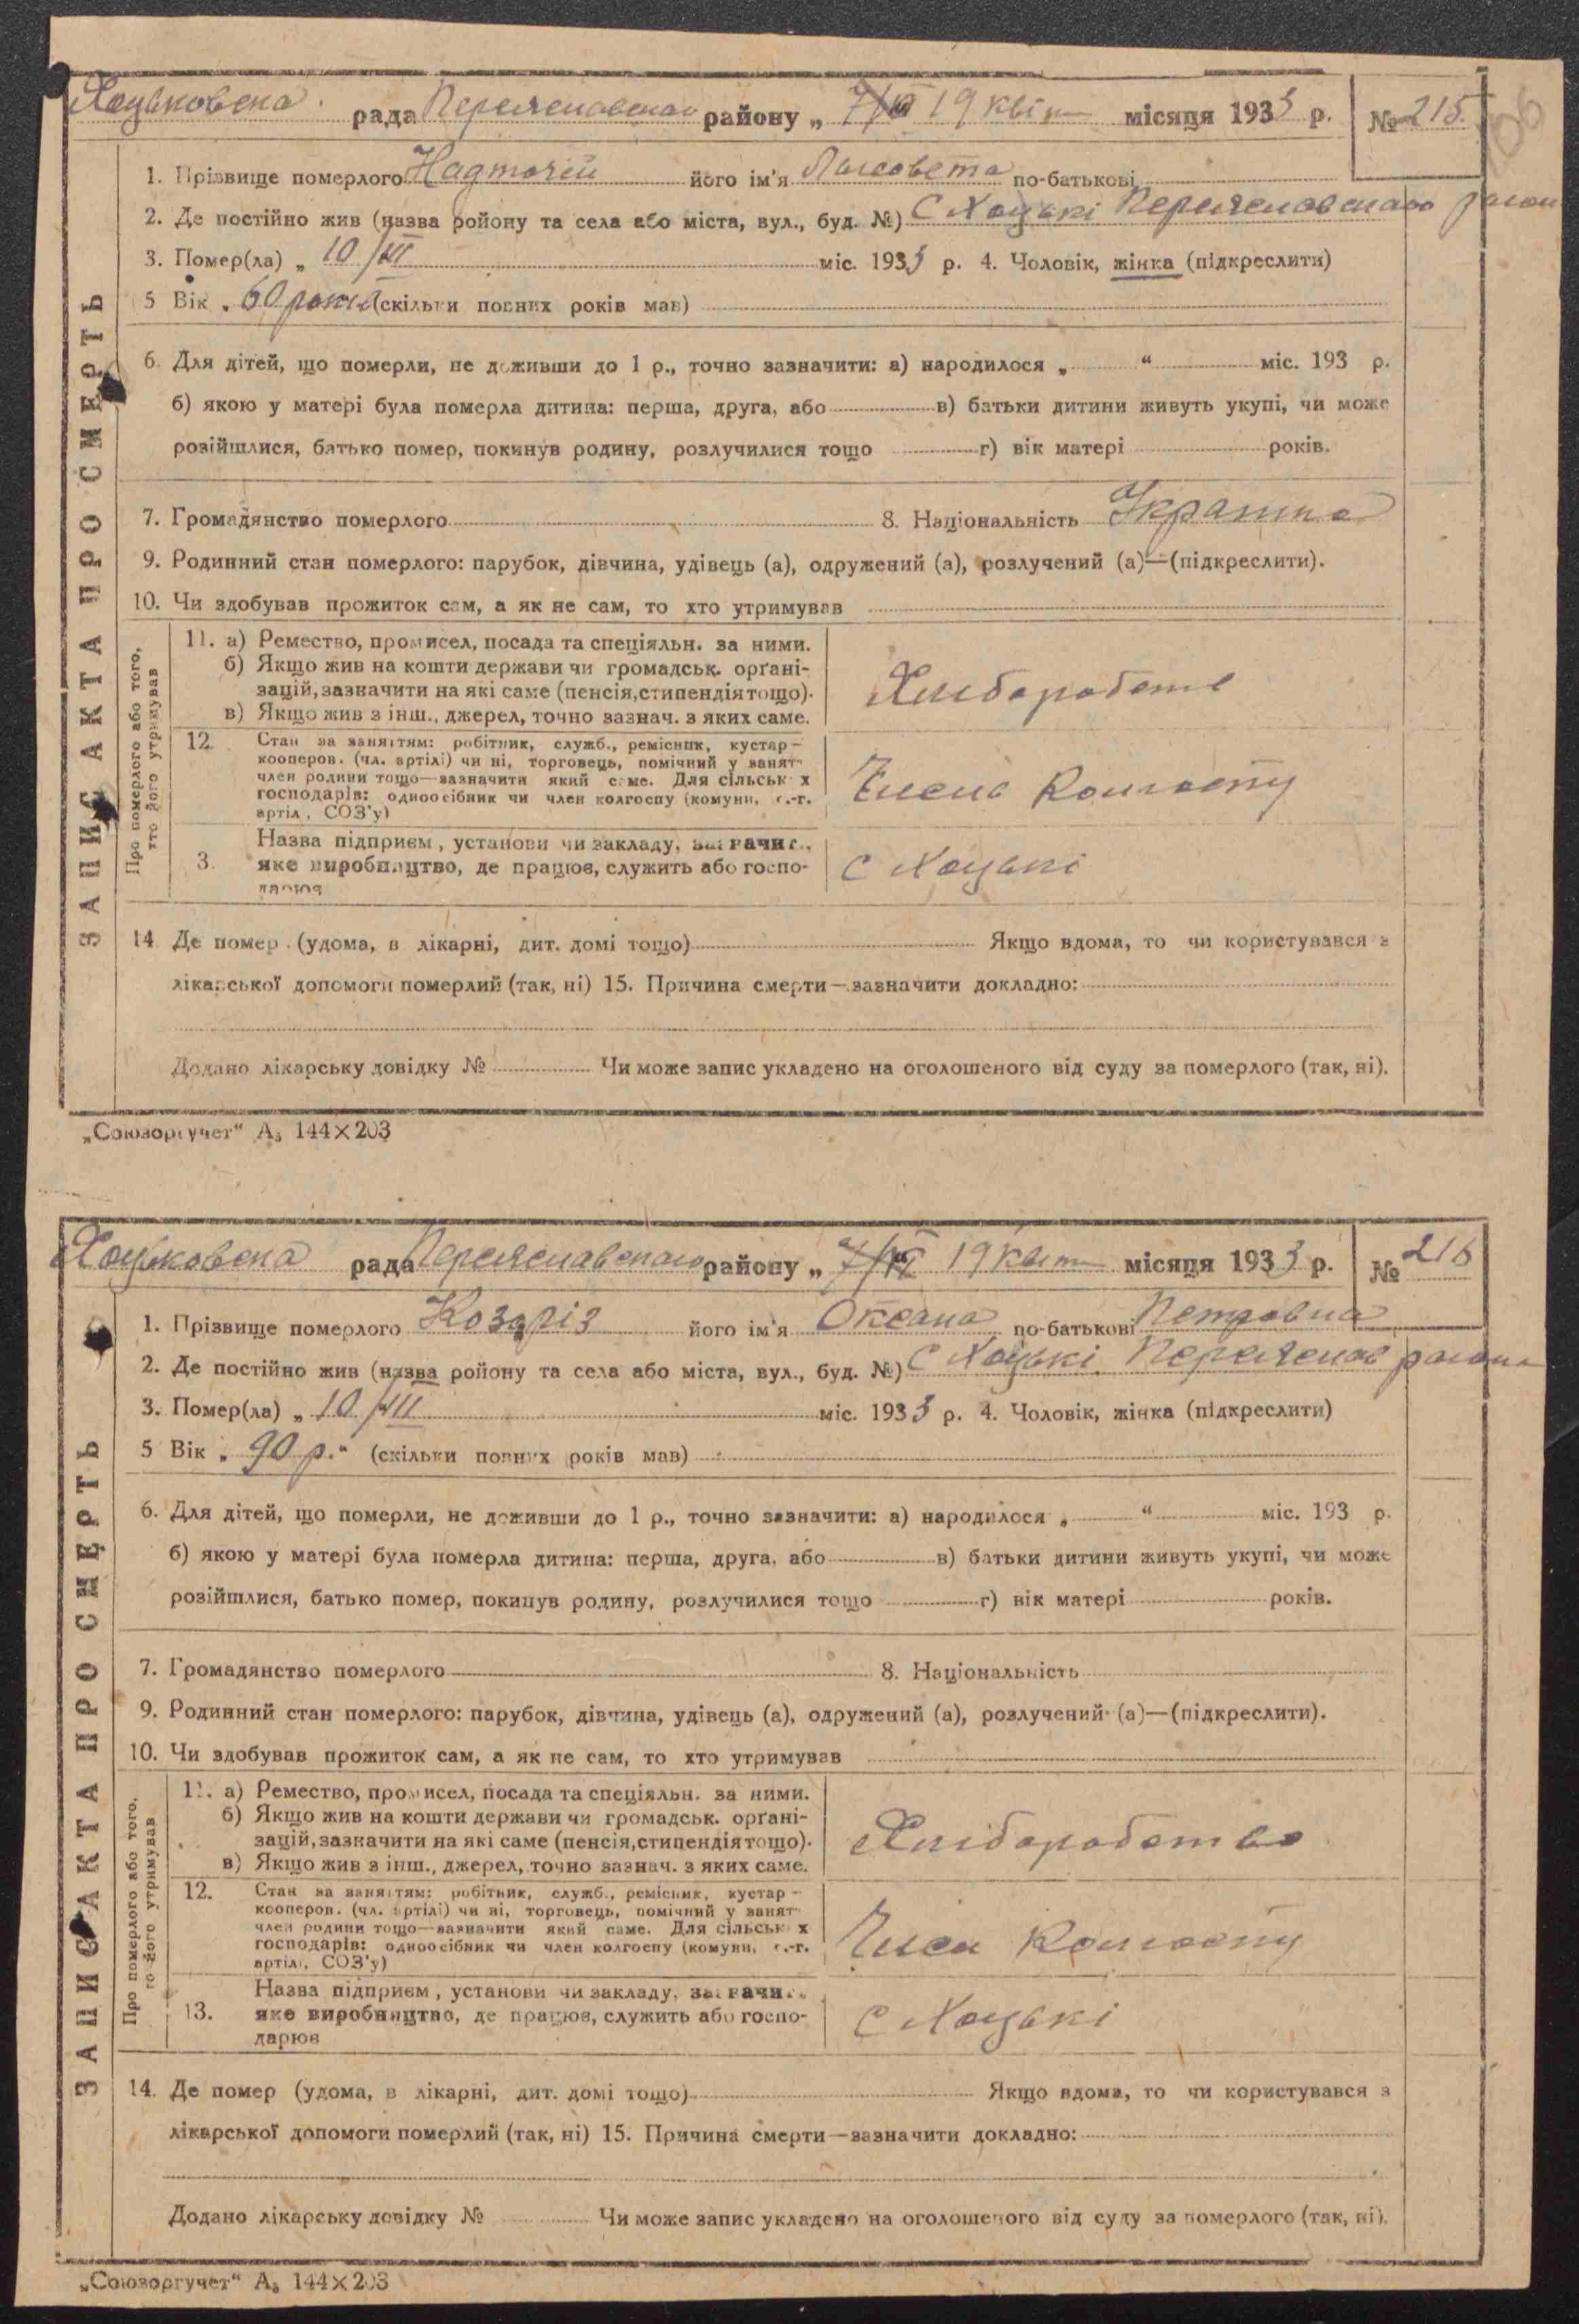 Хоцьковська рада Переяславского району „ 19 квіт місяця 1933 р. № 215
1. Прізвище померлого Надточій його ім'я Лисовета по-батькові
2. Де постійно жив (назва ройону та села або міста, вул., буд. №) С Хоцькі Переяславского район
3. Помер(ла) „ 10/III міс. 1933 р. 4. Чоловік, жінка (підкреслити)
5 Вік „ 60 років (скільки повних років мав)
6. Для дітей, що померли, не доживши до 1 р., точно зазначити: а) народилося „ “ міс. 193 р.
б) якою у матері була померла дитина: перша, друга, або в) батьки дитини живуть укупі, чи може
розійшлися, батько помер, покинув родину, розлучилися тощо г) вік матері років.
7. Громадянство померлого 8. Національність Українка
9. Родинний стан померлого: парубок, дівчина, удівець (а), одружений (а), розлучений (а)—(підкреслити).
10. Чи здобував прожиток сам, а як не сам, то хто утримував
ЗАПИС АКТА ПРО СМЕРТЬ
Про померлого або того,
хто його утримував
11. а) Ремество, промисел, посада та спеціяльн. за ними.
б) Якщо жив на кошти держави чи громадськ. орґані-
зацій, зазначити на які саме (пенсія, стипендія тощо).
в) Якщо жив з інш., джерел, точно зазнач. з яких саме.
Хліборобств
12. Стан за заняттям: робітник, служб., ремісник, кустар –
кооперов. (чл. артілі) чи ні, торговець, помічний у занят
член родини тощо—зазначити який саме. Для сільськ х
господарів: одноосібник чи член колгоспу (комуни, с.-г.
артіл, СОЗ'у)
Члена Колгоспу
3. Назва підприєм, установи чи закладу, зазначит.,
яке виробництво, де працює, служить або госпо-
дарює
С Хоцькі
14 Де помер (удома, в лікарні, дит. домі тощо) Якщо вдома, то чи користувався з
лікарської допомоги померлий (так, ні) 15. Причина смерти—зазначити докладно:
Додано лікарську довідку № Чи може запис укладено на оголошеного від суду за померлого (так, ні).
„Союзоргучет“ А₅ 144×203
Хоцьковська рада Переяславского району „ 19 квіт місяця 1933 р. № 216
1. Прізвище померлого Козоріз його ім'я Оксана по-батькові Петровна
2. Де постійно жив (назва ройону та села або міста, вул., буд. №) С Хоцькі Переяслав района
3. Помер(ла) „ 10/III міс. 1933 р. 4. Чоловік, жінка (підкреслити)
5 Вік „ 90 р.“ (скільки повних років мав)
6. Для дітей, що померли, не доживши до 1 р., точно зазначити: а) народилося „ “ міс. 193 р.
б) якою у матері була померла дитина: перша, друга, або в) батьки дитини живуть укупі, чи може
розійшлися, батько помер, покинув родину, розлучилися тощо г) вік матері років.
7. Громадянство померлого 8. Національність
9. Родинний стан померлого: парубок, дівчина, удівець (а), одружений (а), розлучений (а)—(підкреслити).
10. Чи здобував прожиток сам, а як не сам, то хто утримував
ЗАПИС АКТА ПРО СМЕРТЬ
Про померлого або того,
то його утримував
11. а) Ремество, промисел, посада та спеціяльн. за ними.
б) Якщо жив на кошти держави чи громадськ. орґані-
зацій, зазначити на які саме (пенсія, стипендія тощо).
в) Якщо жив з інш., джерел, точно зазнач. з яких саме.
Хліборобство
12. Стан за заняттям: робітник, служб., ремісник, кустар –
кооперов. (чл. артілі) чи ні, торговець, помічний у занят
член родини тощо—зазначити який саме. Для сільськ х
господарів: одноосібник чи член колгоспу (комуни, с.-г.
артіл, СОЗ'у)
Член Колгоспу
13. Назва підприєм, установи чи закладу, зазначи..
яке виробництво, де працює, служить або госпо-
дарює
С Хоцькі
14. Де помер (удома, в лікарні, дит. домі тощо) Якщо вдома, то чи користувався з
лікарської допомоги померлий (так, ні) 15. Причина смерти—зазначити докладно:
Додано лікарську довідку № Чи може запис укладено на оголошеного від суду за померлого (так, ні).
„Союзоргучет“ А₅ 144×203